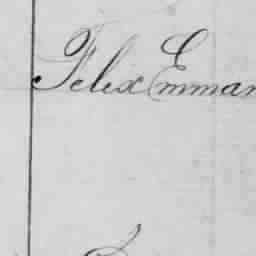 Felix Emman